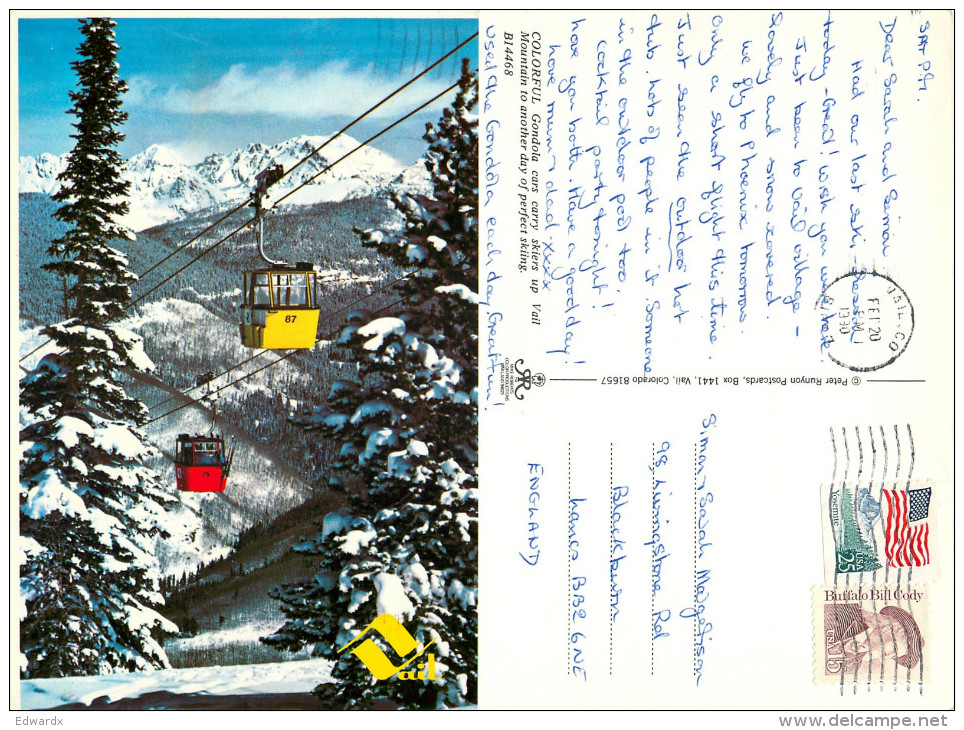 87
75
Vail
COLORFUL Gondola cars carry skiers up Vail
Mountain to another day of perfect skiing.
B14468
SAT P.M.
Dear Sarah and Simon
Had our last ski-session
today - Great! Wish you were here.
Just been to Vail village -
lovely and snow covered.
We fly to Phoenix tomorrow.
Only a short flight this time.
Just seen the outdoor hot
tub. Lots of people in it. Someone
in the outdoor pool too.
Cocktail party tonight!
Love you both. Have a good day!
Love mum & dad xxxx
Used the Gondola each day, Great fun!
© Peter Runyon Postcards, Box 1441, Vail, Colorado 81657
MIKE ROBERTS
COLOR PRODUCTIONS
VAIL, CO
FEB 20
PM
1990
Yosemite
USA
25
Buffalo Bill Cody
USA 15
Simon & Sarah Margetison
98, Livingstone Rd
Blackburn
Lancs BB2 6NE
ENGLAND
Edwardx
delcampe.net